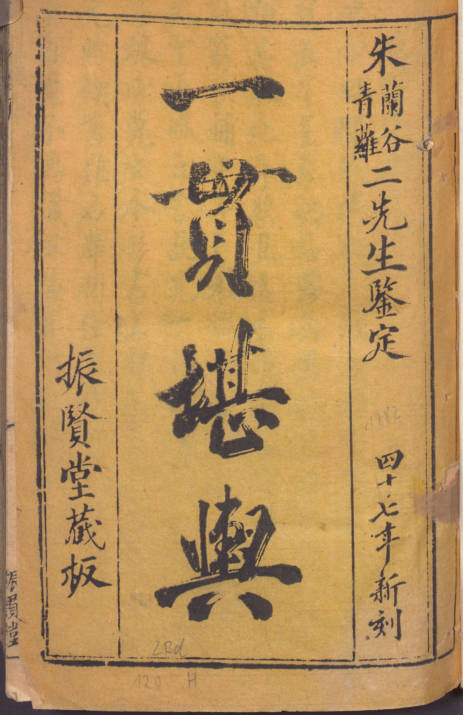 朱蘭谷青蘿二先生鑒定
四十七年新刻
一貫堪輿
振賢堂藏板
振賢堂
1782
2Rd
120 H